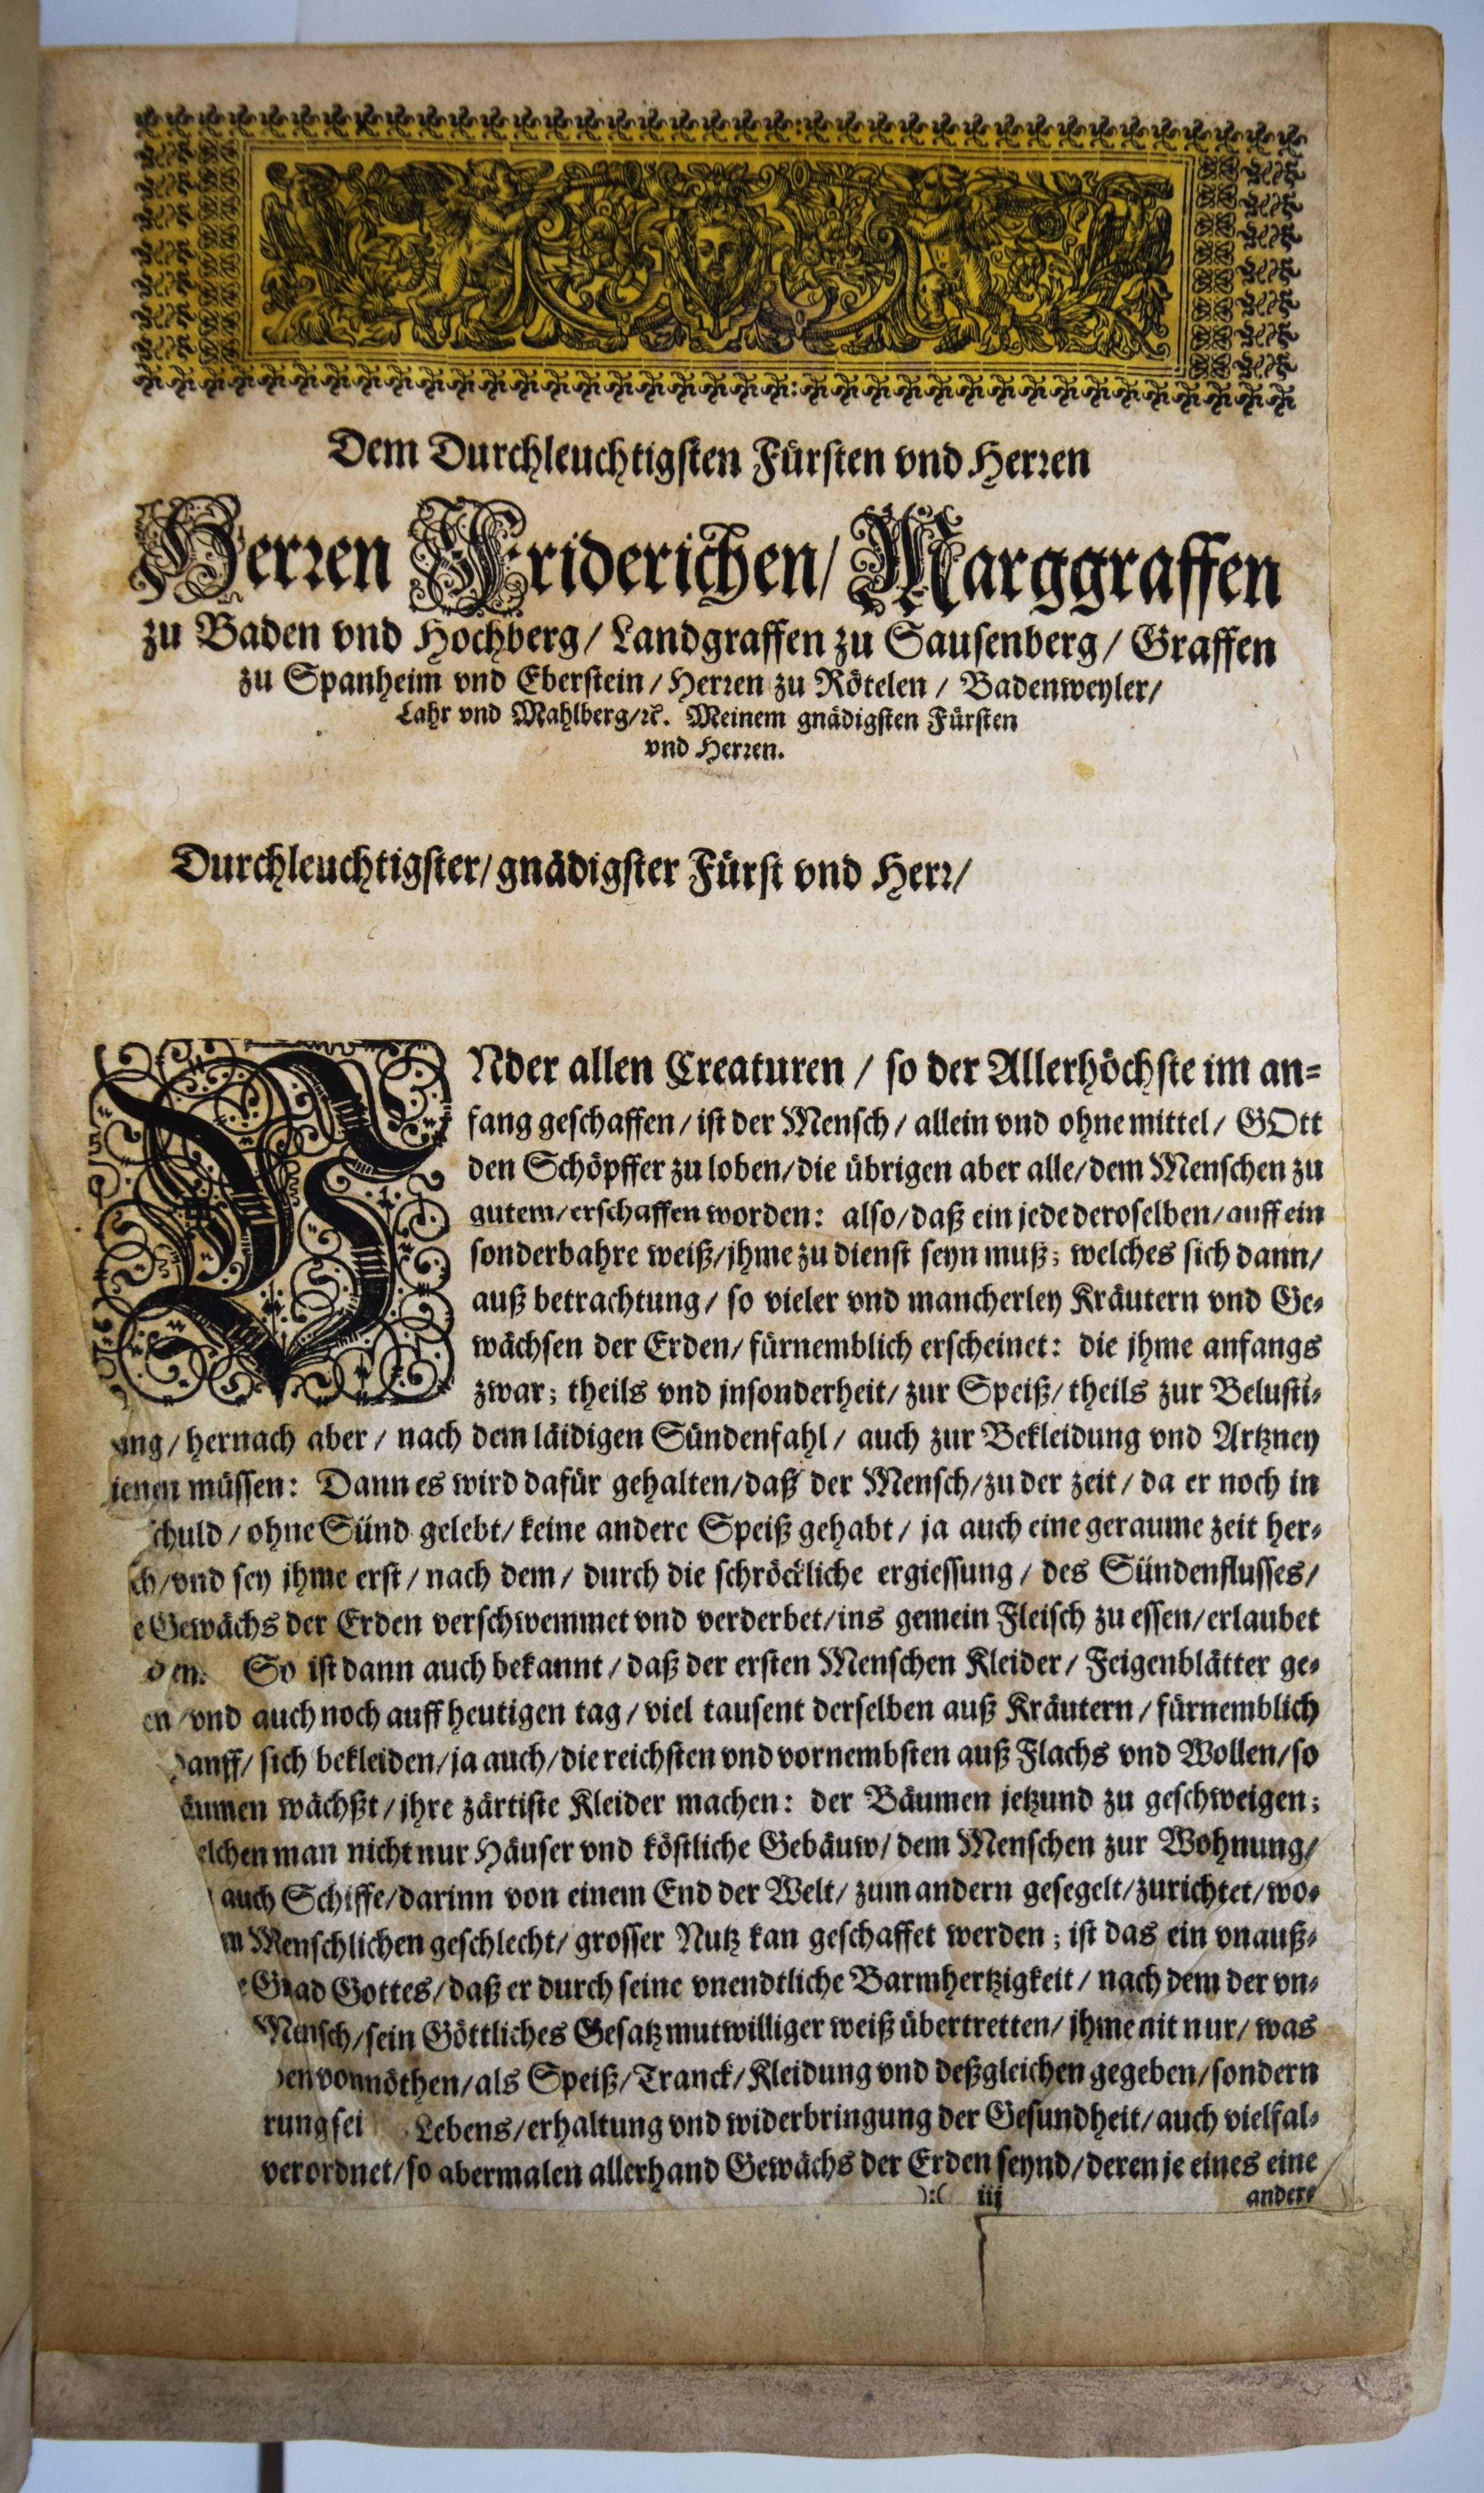 Dem Durchleuchtigsten Fürsten vnd Herren
Herren Friderichen/ Marggraffen
zu Baden vnd Hochberg/ Landgraffen zu Sausenberg/ Graffen
zu Spanheim vnd Eberstein/ Herren zu Rötelen/ Badenweyler/
Lahr vnd Mahlberg/ꝛc. Meinem gnädigsten Fürsten
vnd Herren.
Durchleuchtigster/ gnädigster Fürst vnd Herr/
VNder allen Creaturen / so der Allerhöchste im an-
fang geschaffen/ ist der Mensch/ allein vnd ohne mittel/ GOtt
den Schöpffer zu loben/ die übrigen aber alle/ dem Menschen zu
gutem/ erschaffen worden: also/ daß ein jede deroselben/ auff ein
sonderbahre weiß/ jhme zu dienst seyn muß; welches sich dann/
auß betrachtung/ so vieler vnd mancherley Kräutern vnd Ge-
wächsen der Erden/ fürnemblich erscheinet: die jhme anfangs
zwar; theils vnd jnsonderheit/ zur Speiß/ theils zur Belusti-
ung/ hernach aber/ nach dem läidigen Sündenfahl/ auch zur Bekleidung vnd Artzney
ienen müssen: Dann es wird dafür gehalten/ daß der Mensch/ zu der zeit/ da er noch in
chuld/ ohne Sünd gelebt/ keine andere Speiß gehabt/ ja auch eine geraume zeit her-
ch/ vnd sey jhme erst/ nach dem/ durch die schröckliche ergiessung/ des Sündenflusses/
e Gewächs der Erden verschwemmet vnd verderbet/ ins gemein Fleisch zu essen/ erlaubet
den. So ist dann auch bekannt/ daß der ersten Menschen Kleider/ Feigenblätter ge-
en/ vnd auch noch auff heutigen tag/ viel tausent derselben auß Kräutern/ fürnemblich
anff/ sich bekleiden/ ja auch/ die reichsten vnd vornembsten auß Flachs vnd Wollen/ so
äumen wächßt/ jhre zärtiste Kleider machen: der Bäumen jetzund zu geschweigen;
elchen man nicht nur Häuser vnd köstliche Gebäuw/ dem Menschen zur Wohnung/
auch Schiffe/ darinn von einem End der Welt/ zum andern gesegelt/ zurichtet/ wo-
m Menschlichen geschlecht/ grosser Nutz kan geschaffet werden; ist das ein vnauß-
e Gnad Gottes/ daß er durch seine vnendtliche Barmhertzigkeit/ nach dem der vn-
Mensch/ sein Göttliches Gesatz mutwilliger weiß übertretten/ jhme nit nur/ was
en vonnöthen/ als Speiß/ Tranck/ Kleidung vnd deßgleichen gegeben/ sondern
rung sei Lebens/ erhaltung vnd widerbringung der Gesundheit/ auch vielfal-
verordnet/ so abermalen allerhand Gewächs der Erden seynd/ deren je eines eine
):( iij andere